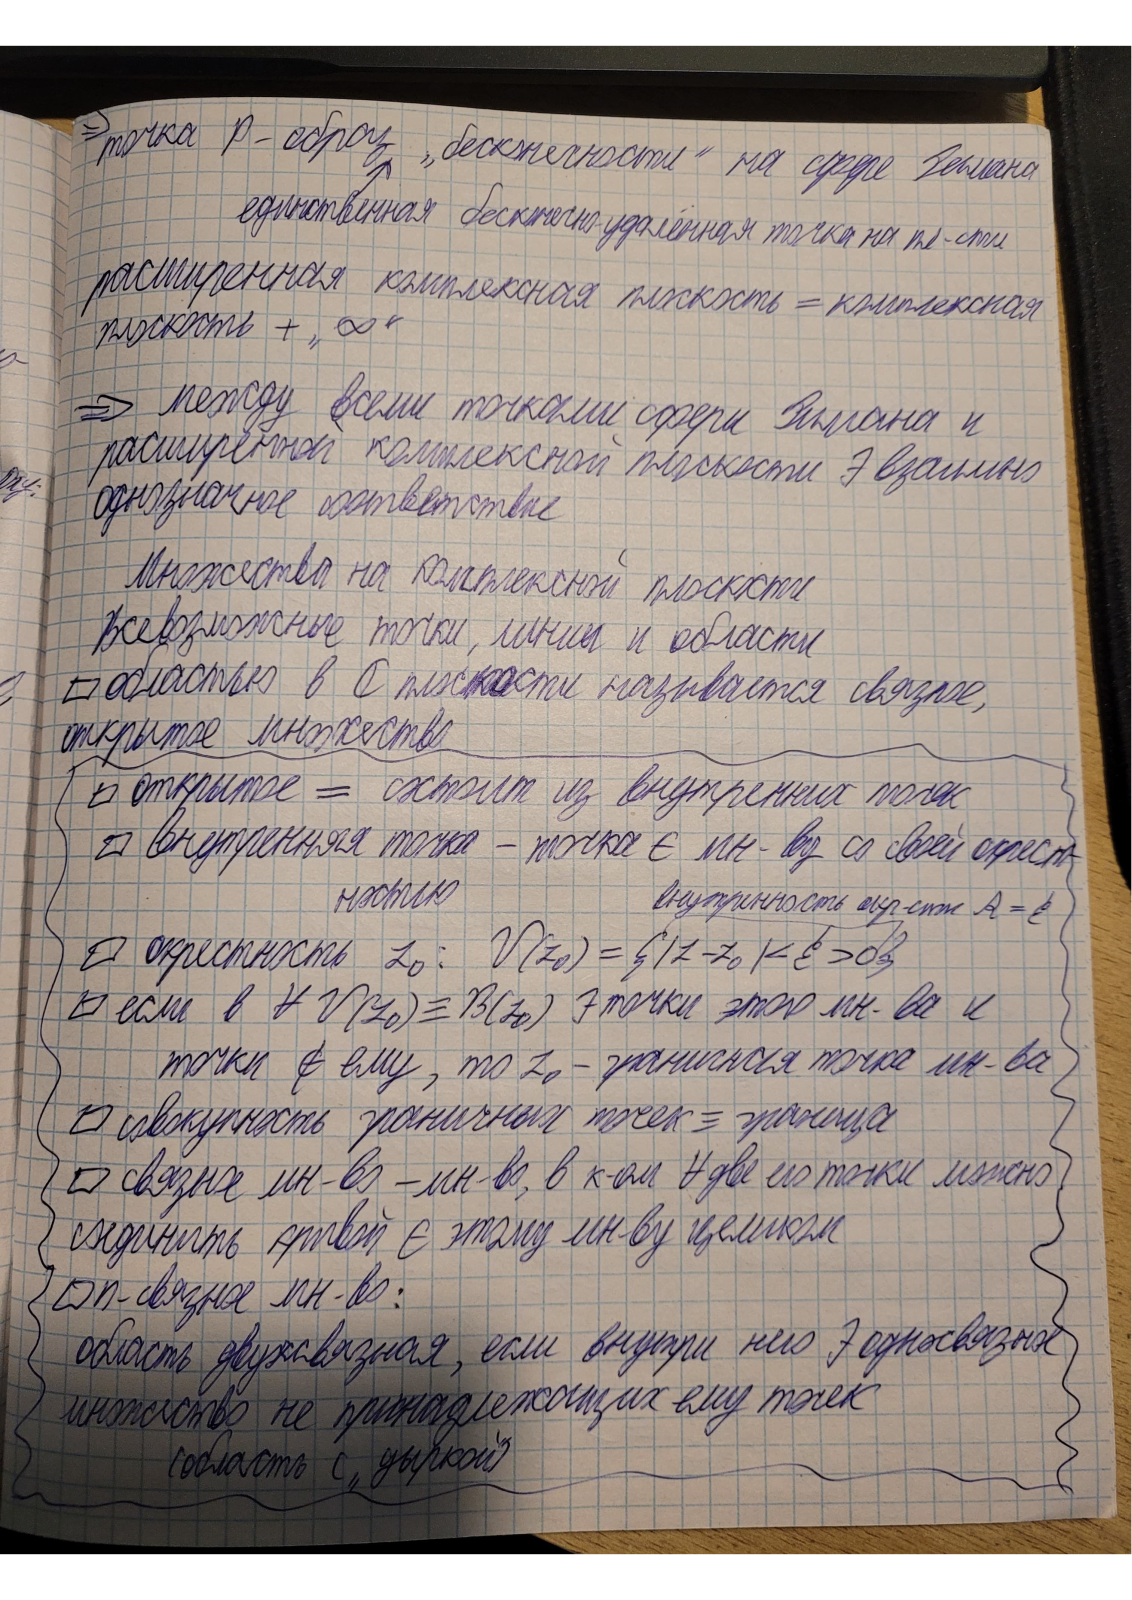 ⇒ точка P - образ „бесконечности" на сфере Римана
единственная бесконечно-удалённая точка на пл-сти
расширенная комплексная плоскость = комплексная
плоскость + „∞"
⇒ между всеми точками сферы Римана и
расширенной комплексной плоскости ∃ взаимно
однозначное соответствие
Множества на комплексной плоскости
Всевозможные точки, линии и области
□ областью в ℂ плоскости называется связное,
открытое множество
□ открытое = состоит из внутренних точек
□ внутренняя точка - точка ∈ мн-ву со своей окрест-
ностью
внутренность окр-сти R = ε
□ окрестность z₀: V(z₀) = {|z - z₀| < ε > 0}
□ если в ∀ V(z₀) ≡ B(z₀) ∃ точки этого мн-ва и
точки ∉ ему, то z₀ - граничная точка мн-ва
□ совокупность граничных точек ≡ граница
□ связное мн-во - мн-во, в к-ом ∀ две его точки можно
соединить кривой ∈ этому мн-ву целиком
□ n-связное мн-во:
область двухсвязная, если внутри него ∃ односвязное
множество не принадлежащих ему точек
(область с „дыркой")